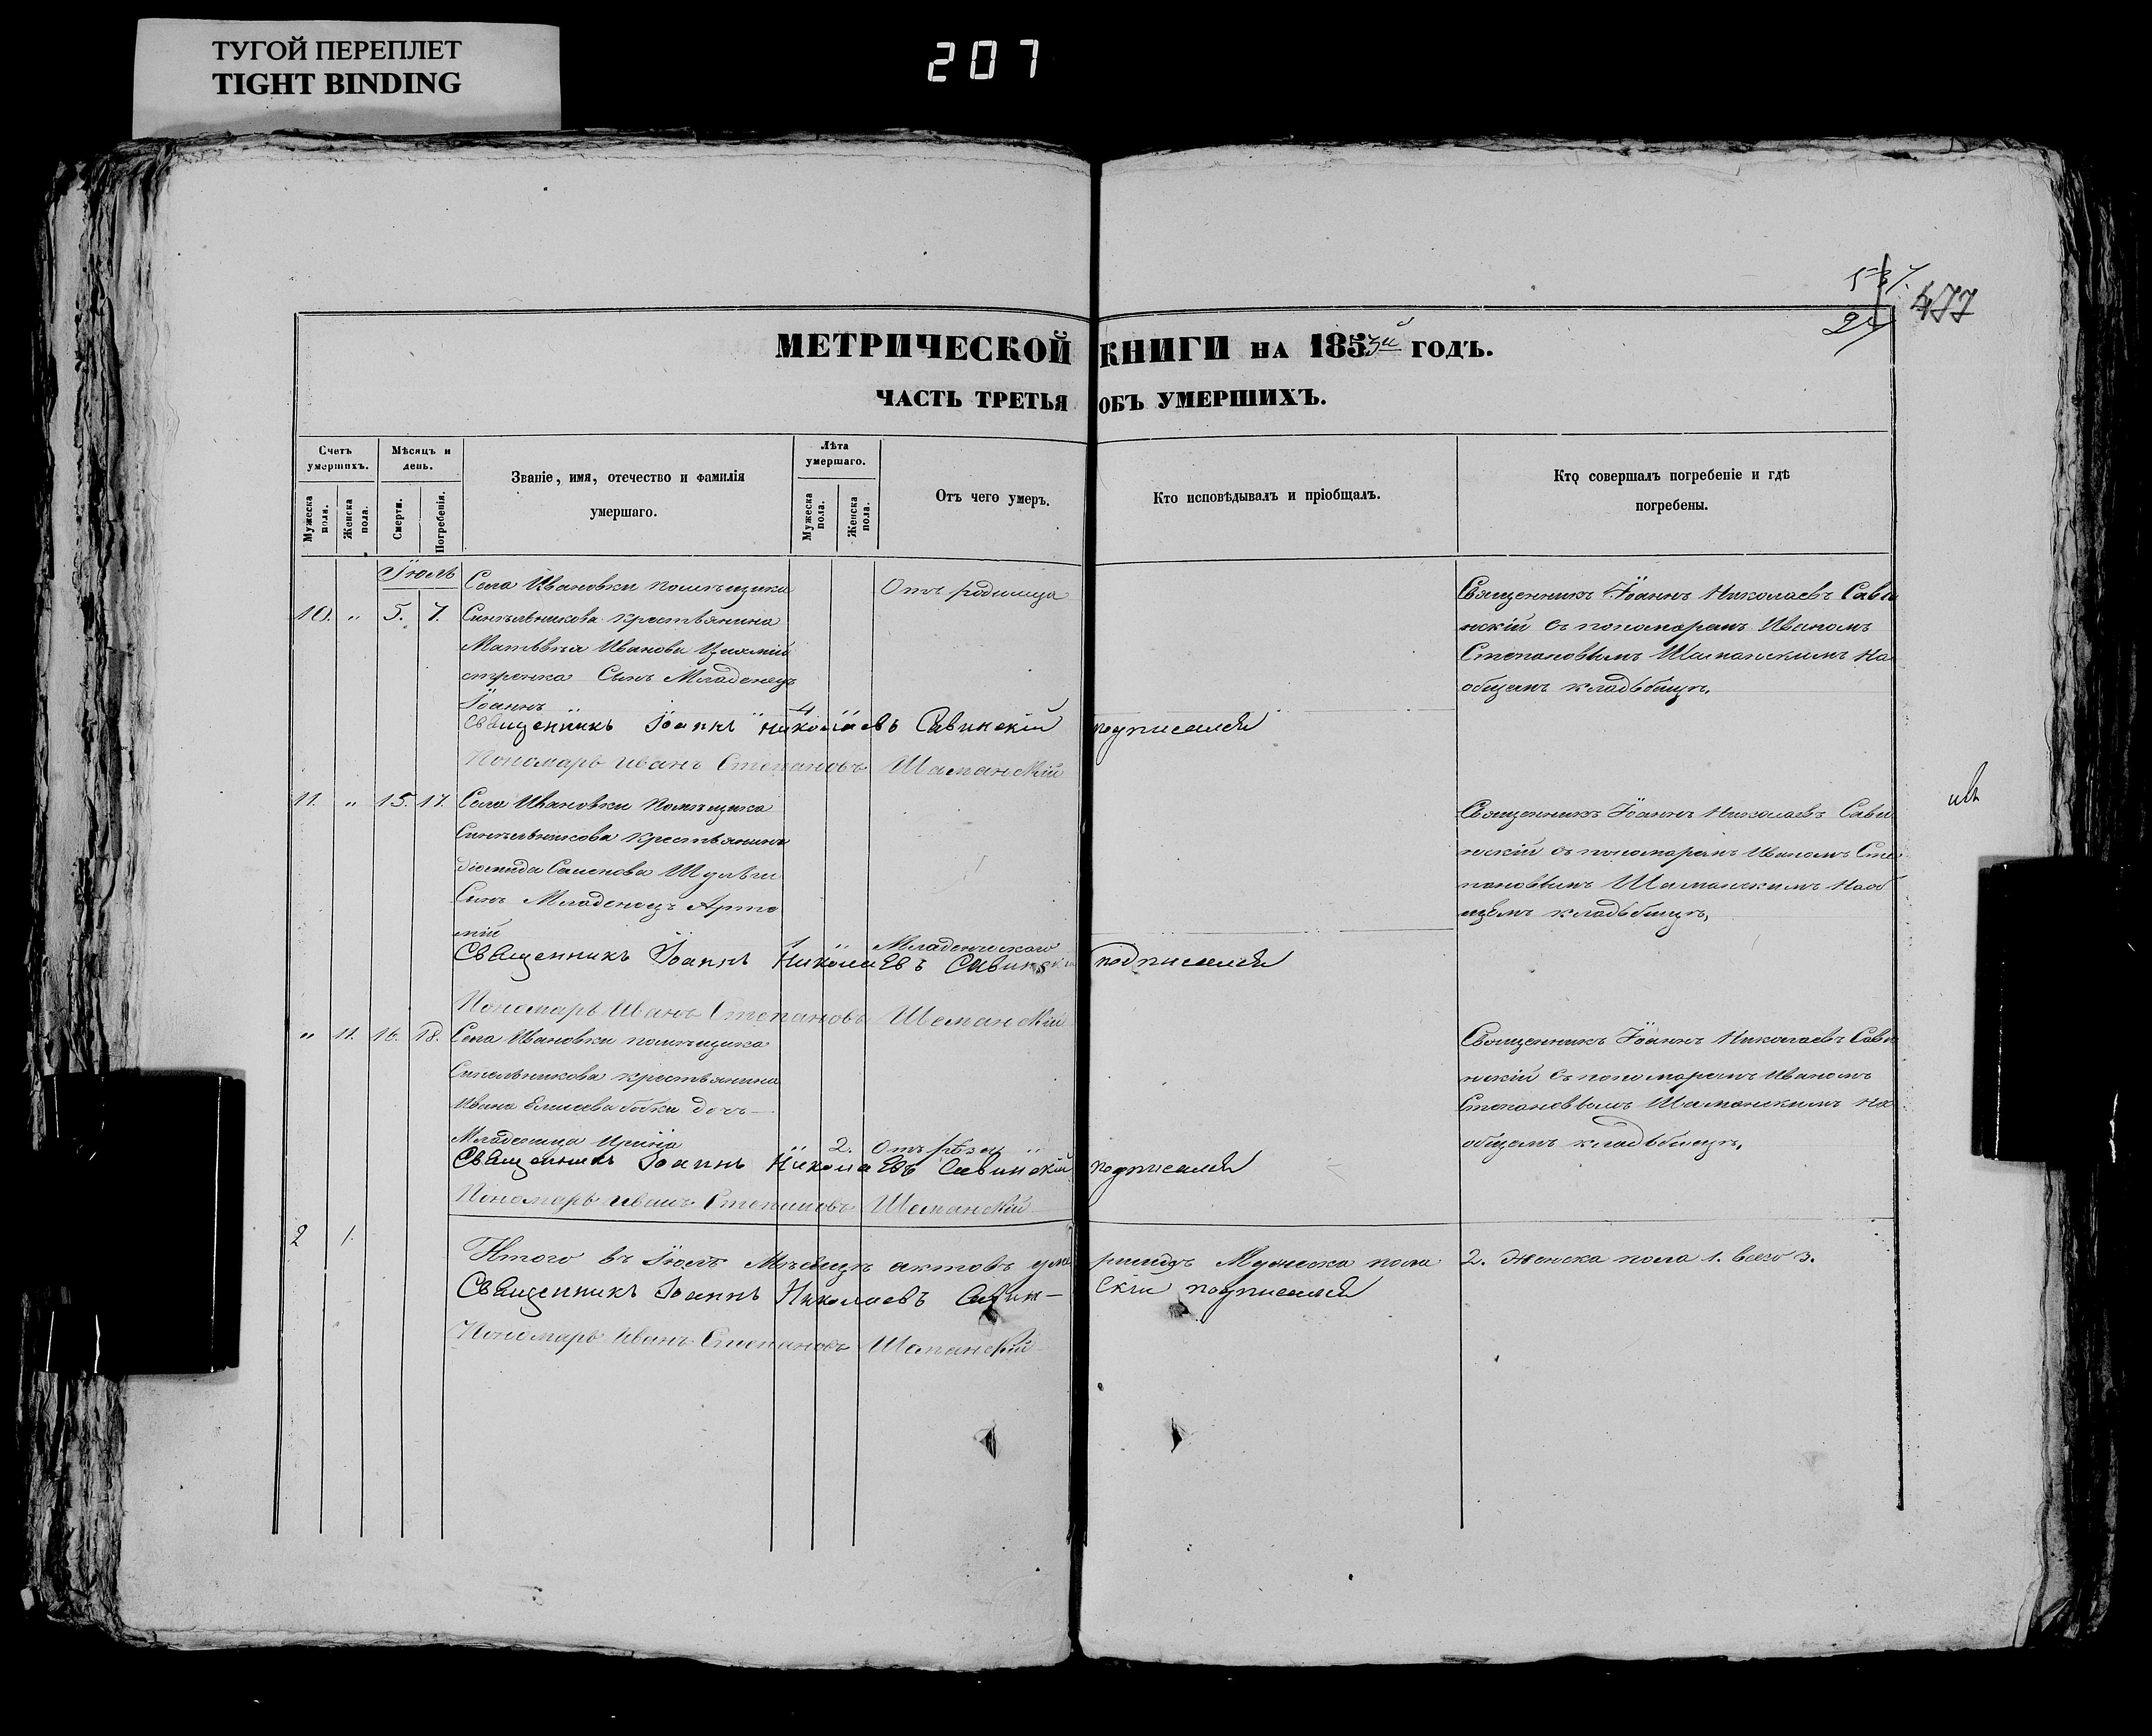 ТУГОЙ ПЕРЕПЛЕТ
TIGHT BINDING
207
477
МЕТРИЧЕСКОЙ КНИГИ НА 1853й ГОДЪ.
ЧАСТЬ ТРЕТЬЯ ОБЪ УМЕРШИХЪ.
Счетъ умершихъ.
Мужеска пола.
Женска пола.
Мѣсяцъ и день.
Смерти.
Погребенія.
Званіе, имя, отечество и фамилія умершаго.
Лѣта умершаго.
Мужеска пола.
Женска пола.
Отъ чего умеръ.
Кто исповѣдывалъ и пріобщалъ.
Кто совершалъ погребеніе и гдѣ погребены.
Іюль
10. " 5. 7.
Села Ивановки помѣщика
Синѣльникова крестьянина
Матвѣя Иванова
стренка Сынъ Младенецъ
Іоаннъ
Отъ родимца
Священникъ Іоаннъ Николаевъ Сави
нскій съ пономаремъ Иваномъ
Степановымъ Шаманскимъ на
общемъ кладбищѣ.
Священникъ Іоаннъ Николаевъ Савинскій подписался
Пономарь Иванъ Степановъ Шаманскій
11. " 15. 17.
Села Ивановки Помѣщика
Синѣльникова крестьянина
Діомида Семенова Шульги
Сынъ Младенецъ Арте
мій
1 " Младенческаго
Священникъ Іоаннъ Николаевъ Сави
нскій съ пономаремъ Иваномъ Сте
пановымъ Шаманскимъ на об
щемъ кладбищѣ,
Священникъ Іоаннъ Николаевъ Савинскій подписался
Пономарь Иванъ Степановъ Шаманскій
" 11. 16. 18.
Села Ивановки помѣщика
Синельникова крестьянина
Ивана Елисеева Бобки дочь
Младеница Ирина
" 2.
Священникъ Іоаннъ Николаевъ Сави
нскій съ пономаремъ Иваномъ
Степановымъ Шаманскимъ на
общемъ кладбищѣ.
Священникъ Іоаннъ Николаевъ Савинскій подписался
Пономарь Иванъ Степановъ Шаманскій
2 1.
Итого въ Іюлѣ Мѣсяцѣ актовъ уме ршихъ Мужеска пола 2. Женска пола 1. всего 3.
Священникъ Іоаннъ Николаевъ Савин- скій подписался
Пономарь Иванъ Степановъ Шаманскій